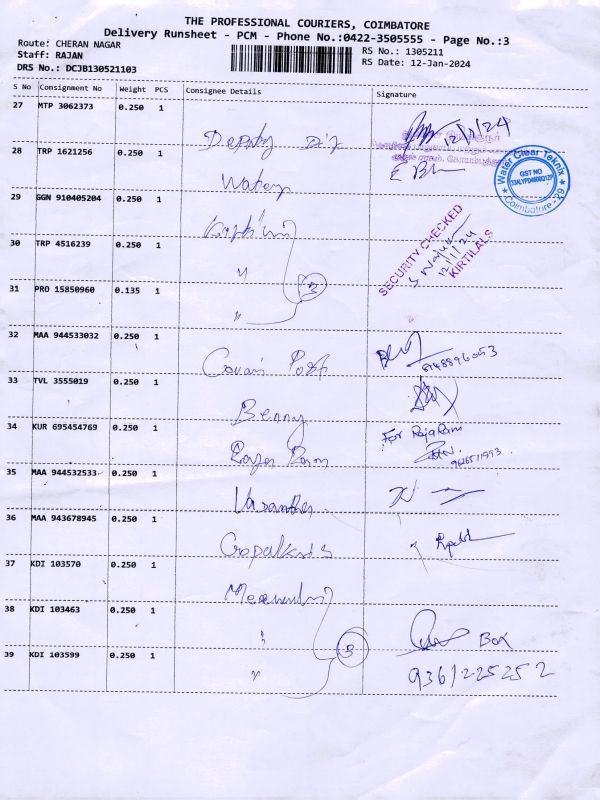 THE PROFESSIONAL COURIERS, COIMBATORE
Delivery Runsheet - PCM - Phone No.:0422-3505555 - Page No.:3
Route: CHERAN NAGAR
RS No.: 1305211
Staff: RAJAN
RS Date: 12-Jan-2024
DRS No.: DCJB130521103
S No Consignment No Weight PCS Consignee Details Signature
27 MTP 3062373 0.250 1
12/1/24
28 TRP 1621256 0.250 1
Water Clear Teknix
GST NO
Coimbatore-29
29 GGN 910405204 0.250 1
SECURITY CHECKED
12/1/24
KIRTILALS
30 TRP 4516239 0.250 1
"
31 PRO 15850960 0.135 1
3
"
32 MAA 944533032 0.250 1
Covai Post
8148896053
33 TVL 3555019 0.250 1
Benny
34 KUR 695454769 0.250 1
For RajaRam
Raja Ram
35 MAA 944532533 0.250 1
Vasantha
36 MAA 943678945 0.250 1
37 KDI 103570 0.250 1
38 KDI 103463 0.250 1
"
3
Box
39 KDI 103599 0.250 1
"
9361225252